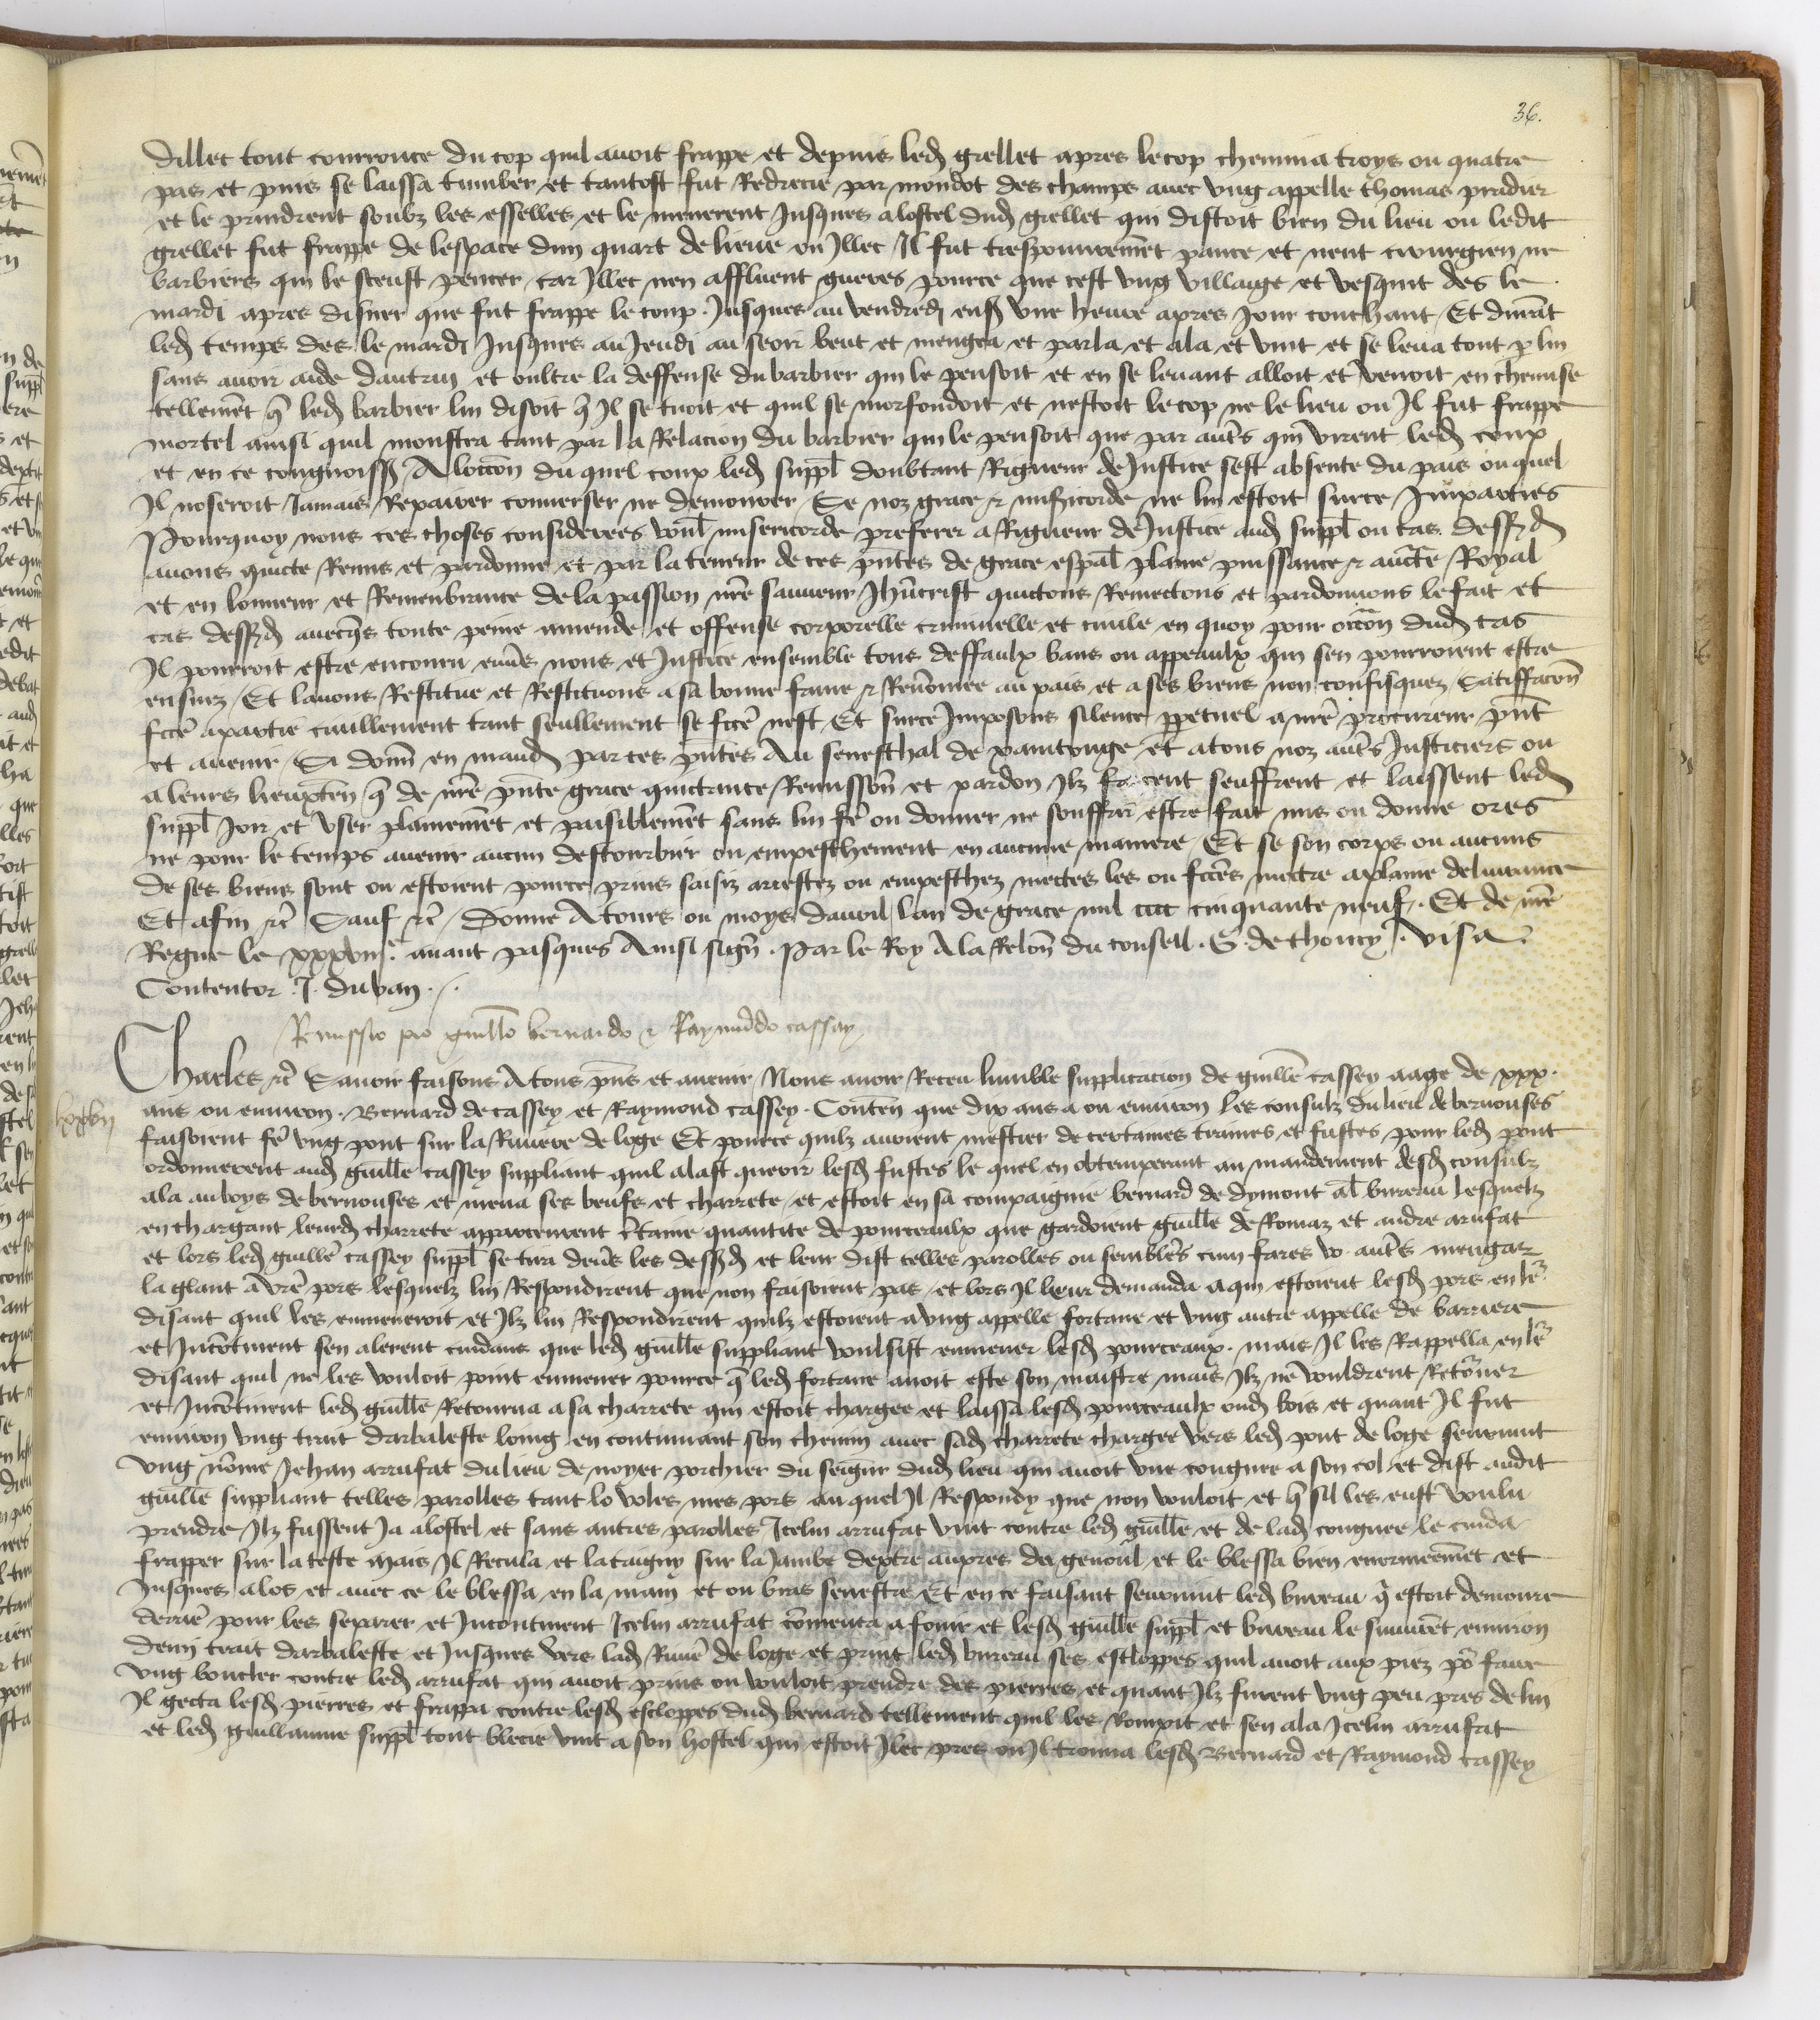 36.
dillec tout courrouce du cop quil avoit frappe et depuis led grellet apres le cop chemina troys ou quatre
pas et puis se laissa tumber et tantost fut Redrecie par mondot des champs avec ung appelle thomas pradier
et le prindrent soubz les esselles et le menerent Jusques a lostel dud grellet qui distoit bien du lieu ou ledit
grellet fut frappe de lespace dun quart de lieue ou Illec Il fut trespourement pance et neut cirurgien ne
barbiers qui le sceust pencer car Illec nen affluent gueres pource que cest ung villaige et vesquit des le
mardi apres disner que fut frappe le coup Jusques au vendredi ens une heure apres Jour couchant Et durāt
led temps des le mardi Jusques au Jeudi au seoir beut et mengea et parla et ala et vint et se leva tout p lui
sans avoir aide dautruy et oultre la deffense du barbier qui le pensoit et en se levant alloit et venoit en chemise
tellemēt q led barbier lui disoit q Il se tuoit et quil se morfondoit et nestoit le cop ne le lieu ou Il fut frappe
mortel ainsi quil monstra tant par la Relacion du barbier qui le pensoit que par autres qui virent led coup
et en ce congnoiss A loccōn du quel coup led suppl doubtant Rigueur de Justice sest absente du pais ouquel
Il noseroit Jamais Repairer converser ne demourer Se noz grace et misericorde ne lui estoit surce Imparties
Pourquoy nous ces choses considerees voul misericorde preferer a Rigueur de Justice aud suppl ou cas dessd
avons quicte Remis et pardonne et par la teneur de ces pntes de grace espal plaine puissance et aucte Royal
et en lonneur et Remenbrance de la passion nre sauveur Jhucrist quictons Remectons et pardonnons le fait et
cas dessd avecqs toute peine amende et offense corporelle criminelle et civile en quoy pour occōn dud cas
Il pourroit estre encouru envs nous et Justice ensemble tous deffaulx bans ou appeaulx qui sen pourroient estre
ensuiz Et lavons Restitue et Restituons a sa bonne fame et Renōmee au pais et a ses biens non confisquez Satiffacōn
fcte a partie civillement tant seullement se fcte nest Et surce Imposons silence ppetuel a nre procureur pnt
et avenir Si donn en mand par ces pntes Au seneschal de xantonge et a tous noz autrs Justiciers ou
a leurs lieuxten q de nre pnte grace quictance Remissōn et pardon Ilz facent seuffrent et laissent led
suppl Joir et User plainemēt et paisiblemēt sans lui fe ou donner ne souffrir estre fait mis ou donne ores
ne pour le temps avenir aucun destourbier ou empeschement en aucune maniere Et se son corps ou aucuns
de ses biens sont ou estoient pource prins saisiz arrestez ou empeschez mectes les ou fctes mectre a plaine delivrance
Et afin etc Sauf etc Donne A tours ou moys davril lan de grace mil cccc cinquante neuf Et de nre
Regne le xxxviiie avant pasques Ainsi sign Par le Roy A la Relōn du conseil G de thoucy visa
Contentor J duban
Remissio pro guillo bernardo et Raymūdo cassay
Charles etc Savoir faisons A tous pns et avenir Nous avoir Receu lumble supplicacion de guille cassey aage de xxx
ans ou environ Bernard de cassey et Raymond cassey Conten que dix ans a ou environ les consulz du lieu de bernouses
faisoient fe ung pont sur la Riviere de loge Et pource quilz avoient mestier de certaines traines et fustes pour led pont
ordonnerent aud guille cassey suppliant quil alast querir lesd fustes le quel en obtemperant au mandement desd consulz
ala au boys de bernouses et mena ses beufs et charrete et estoit en sa compaignie bernard de dymont al bureau lesquelz
en chargant leurd charrete apparceurent ctaine quantite de pourceaulx que gardoient guille de Romaz et andre arufat
et lors led guille cassey suppl se tira devs les dessd et leur dist telles parolles ou semblēs cum fares vo autrs mengar
la glant a vre pors lesquelz lui Respondirent que non faisoient pas et lors Il leur demanda a qui estoient lesd pors en le
disant quil les enmeneroit et Ilz lui Respondirent quilz estoient a ung appelle fortane et ung autre appelle de barriere
et Incōtinent sen alerent cuidans que led guille suppliant voulsist enmener lesd pourceaux mais Il les Rappella en le
disant quil ne les vouloit point enmener pource q led fortane avoit este son maistre mais Ilz ne vouldrent Retōner
et Incōtinent led guille Retourna a sa charrete qui estoit chargee et laissa lesd pourceaulx oud bois et quant Il fut
environ ung trait darbaleste loing en continuant son chemin avec sad charrete chargee vers led pont de loge seurvint
Ung nōme Jehan arrufat du lieu de noyet porchier du seignr dud lieu qui avoit une congnee a son col et dist audit
guille suppliant telles parolles tant lo voles mes pors au quel Il Respondy que non vouloit et q sil les eust voulu
prendre Ilz fussent Ja a lostel et sans autres parolles Icelui arrufat vint contre led guille et de lad congnee le cuida
frapper sur la teste mais Il Recula et lataigny sur la Jambe dextre aupres du genoul et le blessa bien enormeemēt et
Jusques a los et avec ce le blessa en la main et ou bras senestre Et en ce faisant seurvint led bureau q estoit demoure
derriē pour les separer et Incontinent Icelui arrufat cōmenca a fouir et lesd guille suppl et bureau le suivirēt environ
demi trait darbaleste et Jusques vers lad Riviē de loge et print led bureau ses escloppes quil avoit aux piez po faire
ung boucler contre led arrufat qui avoit prins ou vouloit prendre des pierres et quant Ilz furent ung peu pres de lui
Il gecta lesd pierres et frappa contre lesd escloppes dud bernard tellement quil les Rompit et sen ala Icelui arrufat
et led guillaume suppl tout blecie vint a son hostel qui estoit Ilec pres ou Il trouva lesd Bernard et Raymond cassey